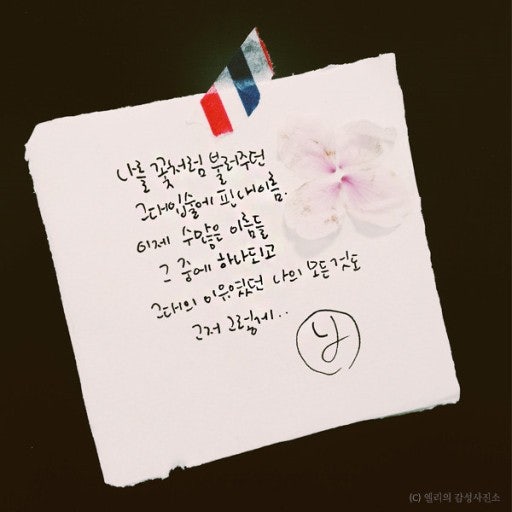 나를 꽃처럼 불러주던
그대입술에 핀 내이름.
이제 수많은 이름들
그 중에 하나되고
그대의 이유였던 나의 모든것도
그저 그렇게..
(C) 엘리의 감성사진소